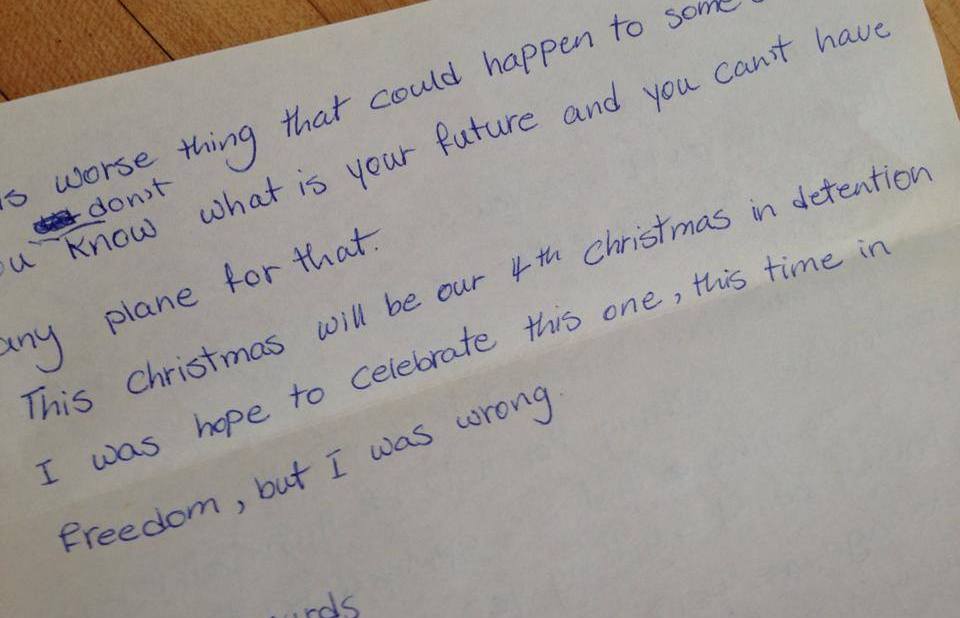 worse thing that could happen to some
don't
know what is your future and you can't have
any plane for that.
This Christmas will be our 4th Christmas in detention
I was hope to celebrate this one, this time in
freedom, but I was wrong.